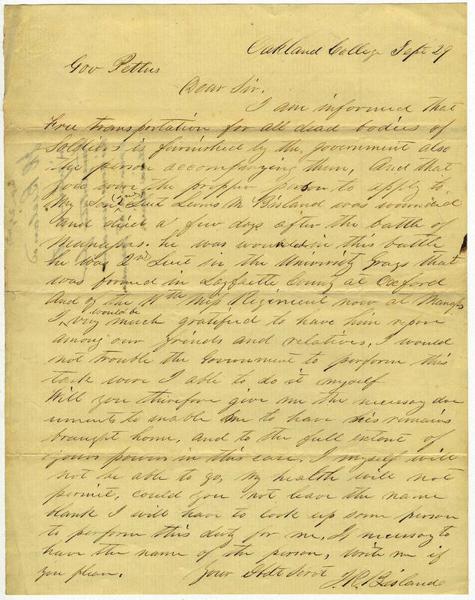 Oakland College Sept 29
Gov Pettus
Dear Sir.
I am informed that
Free transportation for all dead bodies of
Soldiers is furnished by the government also
the person accompanying them, And that
you were the propper person to apply to
My Son 2nd Lieut M. Bisland was wounded
and died a few days after the battle of
Manassas. he was wounded in this battle
he was 2nd Lieut in the University Grays that
was formed in Lafayette County at Oxford
And of the 11th Miss Regiment now at
I would be very much gratified to have him repose
among our friends and relatives, I would
not trouble the Government to perform this
task were I able to do it myself
Will you therefore give me the necessary doc
uments to enable me to have his remains
braught home, and to the full extent of
your power in this case. I myself will
not be able to go, my health will not
permit, could you not leave the name
blank I will have to look up some person
to perform this duty for me, If necessary to
have the name of the person, write me if
you please. Your Obdt Servt
Bisland